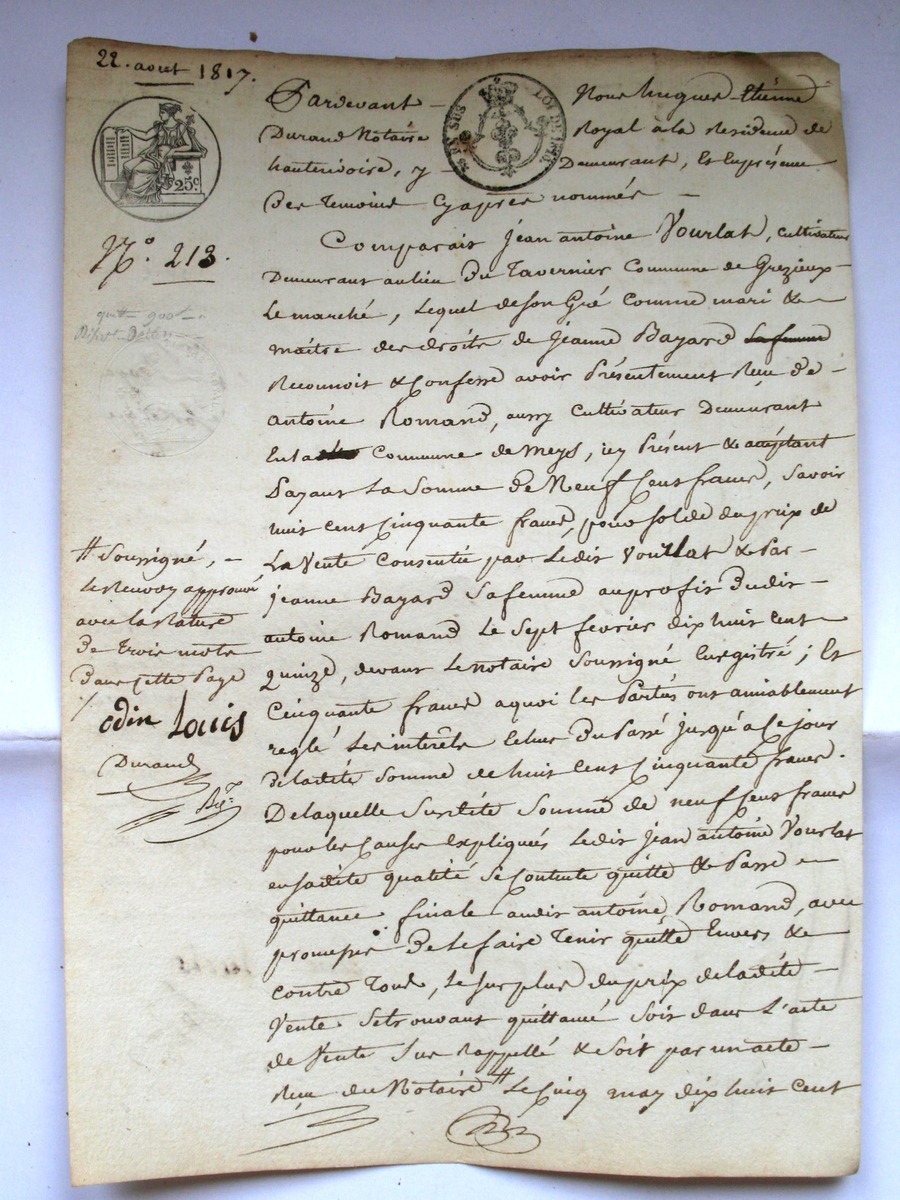 22. aout 1817.
Pardevant Nous hugues Etienne
Durand Notaire Royal à la Residence de
hauterivoire, y Demeurant, Et En présence
Des Temoins Cy après nommés
25c.
N.° 213.
Comparais Jean antoine Vourlat, cultivateur
Demeurant au lieu Du Tavernier Commune de Grezieux
Le marché, Lequel de son Gré comme mari &
maitre des droits de Jeanne Bayard La femme
Reconnoit & Confesse avoir Présentement Reçu De
antoine Romand, aussy Cultivateur Demeurant
En la Commune de Meys, icy Présent & acceptant
Payant La Somme De Neuf Cens francs, Savoir
huit cent Cinquante francs, pour solde du prix de
La Vente Consentie par Ledit Vourlat & Par
Jeanne Bayard Sa femme au profit Dudit
antoine Romand Le Sept fevrier dix huit cent
Quinze, devant Le notaire Soussigné Enregistré ; Et
Cinquante francs a quoi les Parties ont amiablement
reglé Les interêts Echus Du Passé Jusqu'à Ce jour
De ladite Somme de huit Cens Cinquante francs.
De laquelle Susdite Somme de neuf Cens francs
pour les Causes Expliquées Ledit Jean antoine Vourlat
en sadite qualité Se Contente quitte & Passe
quittance finale audit antoine Romand, avec
promesse De Le faire Tenir quitte Envers &
contre Tous, Le surplus du prix de ladite
Vente Se trouvant quittancé Soit dans L'acte
de Vente Sus Rappellé & Soit par un acte
Reçu du Notaire # Le Cinq may dix huit Cent
# Soussigné,
Le Renvoy approuvé
avec la Rature
De trois mots
Dans Cette Page
odin Louis
Durand